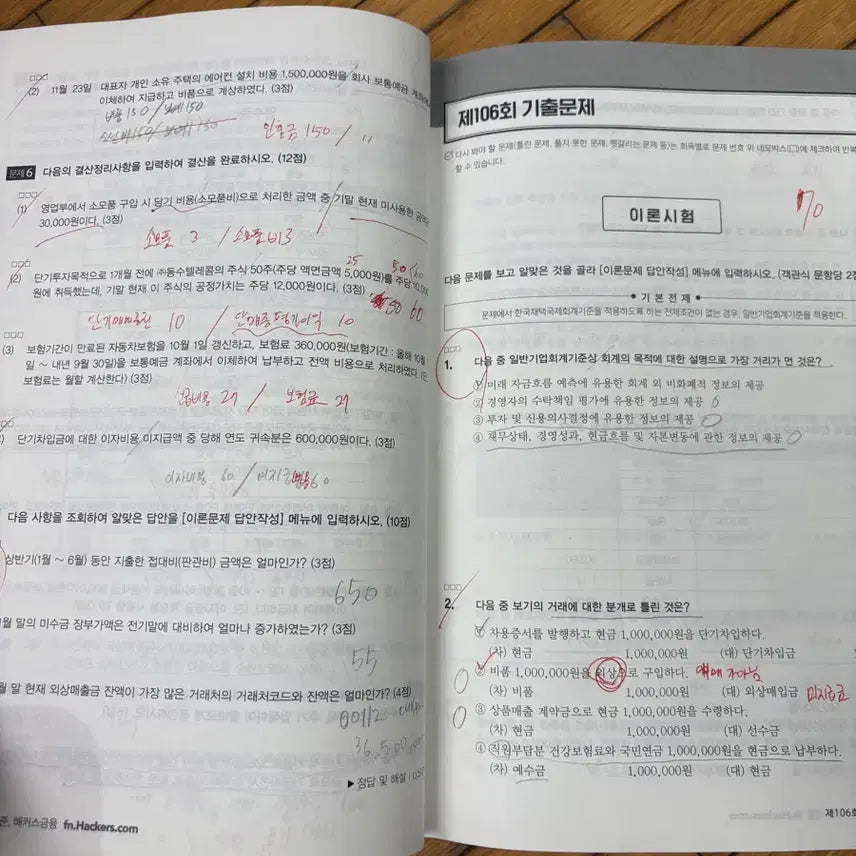 (2) 11월 23일 대표자 개인 소유 주택의 에어컨 설치 비용 1,500,000원을 회사 보통예금 계좌에서
이체하여 지급하고 비품으로 계상하였다. (3점)
비품 150 / 보예 150
인출금 150 / "
문제 6 다음의 결산정리사항을 입력하여 결산을 완료하시오. (12점)
(1) 영업부에서 소모품 구입 시 당기 비용(소모품비)으로 처리한 금액 중 기말 현재 미사용한 금액은
30,000원이다. (3점)
소모품 3 / 소모품비 3
25 50 60
(2) 단기투자목적으로 1개월 전에 ㈜동수텔레콤의 주식 50주(주당 액면금액 5,000원)를 주당 10,000
원에 취득했는데, 기말 현재 이 주식의 공정가치는 주당 12,000원이다. (3점)
50 60
단기매매증권 10 / 단매증평가이익 10
(3) 보험기간이 만료된 자동차보험을 10월 1일 갱신하고, 보험료 360,000원(보험기간 : 올해 10월
일 ~ 내년 9월 30일)을 보통예금 계좌에서 이체하여 납부하고 전액 비용으로 처리하였다. (단
보험료는 월할 계산한다) (3점)
선급비용 27 / 보험료 27
단기차입금에 대한 이자비용 미지급액 중 당해 연도 귀속분은 600,000원이다. (3점)
이자비용 60 / 미지급비용 60
다음 사항을 조회하여 알맞은 답안을 [이론문제 답안작성] 메뉴에 입력하시오. (10점)
상반기(1월 ~ 6월) 동안 지출한 접대비(판관비) 금액은 얼마인가? (3점)
650
월 말의 미수금 장부가액은 전기말에 대비하여 얼마나 증가하였는가? (3점)
55
월 말 현재 외상매출금 잔액이 가장 많은 거래처의 거래처코드와 잔액은 얼마인가? (4점)
00112
36,500,000
▶ 정답 및 해설
해커스금융 fn.Hackers.com
제106회 기출문제
다시 봐야 할 문제(틀린 문제, 풀지 못한 문제, 헷갈리는 문제 등)는 회독별로 문제 번호 위 네모박스(□)에 체크하여 반복
할 수 있습니다.
이론시험
70
다음 문제를 보고 알맞은 것을 골라 [이론문제 답안작성] 메뉴에 입력하시오. (객관식 문항당 2점
• 기 본 전 제 •
문제에서 한국채택국제회계기준을 적용하도록 하는 전제조건이 없는 경우, 일반기업회계기준을 적용한다.
1. 다음 중 일반기업회계기준상 회계의 목적에 대한 설명으로 가장 거리가 먼 것은?
① 미래 자금흐름 예측에 유용한 회계 외 비화폐적 정보의 제공
② 경영자의 수탁책임 평가에 유용한 정보의 제공
③ 투자 및 신용의사결정에 유용한 정보의 제공
④ 재무상태, 경영성과, 현금흐름 및 자본변동에 관한 정보의 제공
2. 다음 중 보기의 거래에 대한 분개로 틀린 것은?
① 차용증서를 발행하고 현금 1,000,000원을 단기차입하다.
(차) 현금 1,000,000원 (대) 단기차입금
② 비품 1,000,000원을 외상으로 구입하다.
(차) 비품 1,000,000원 (대) 외상매입금
③ 상품매출 계약금으로 현금 1,000,000원을 수령하다.
(차) 현금 1,000,000원 (대) 선수금
④ 직원부담분 건강보험료와 국민연금 1,000,000원을 현금으로 납부하다.
(차) 예수금 1,000,000원 (대) 현금
제106회